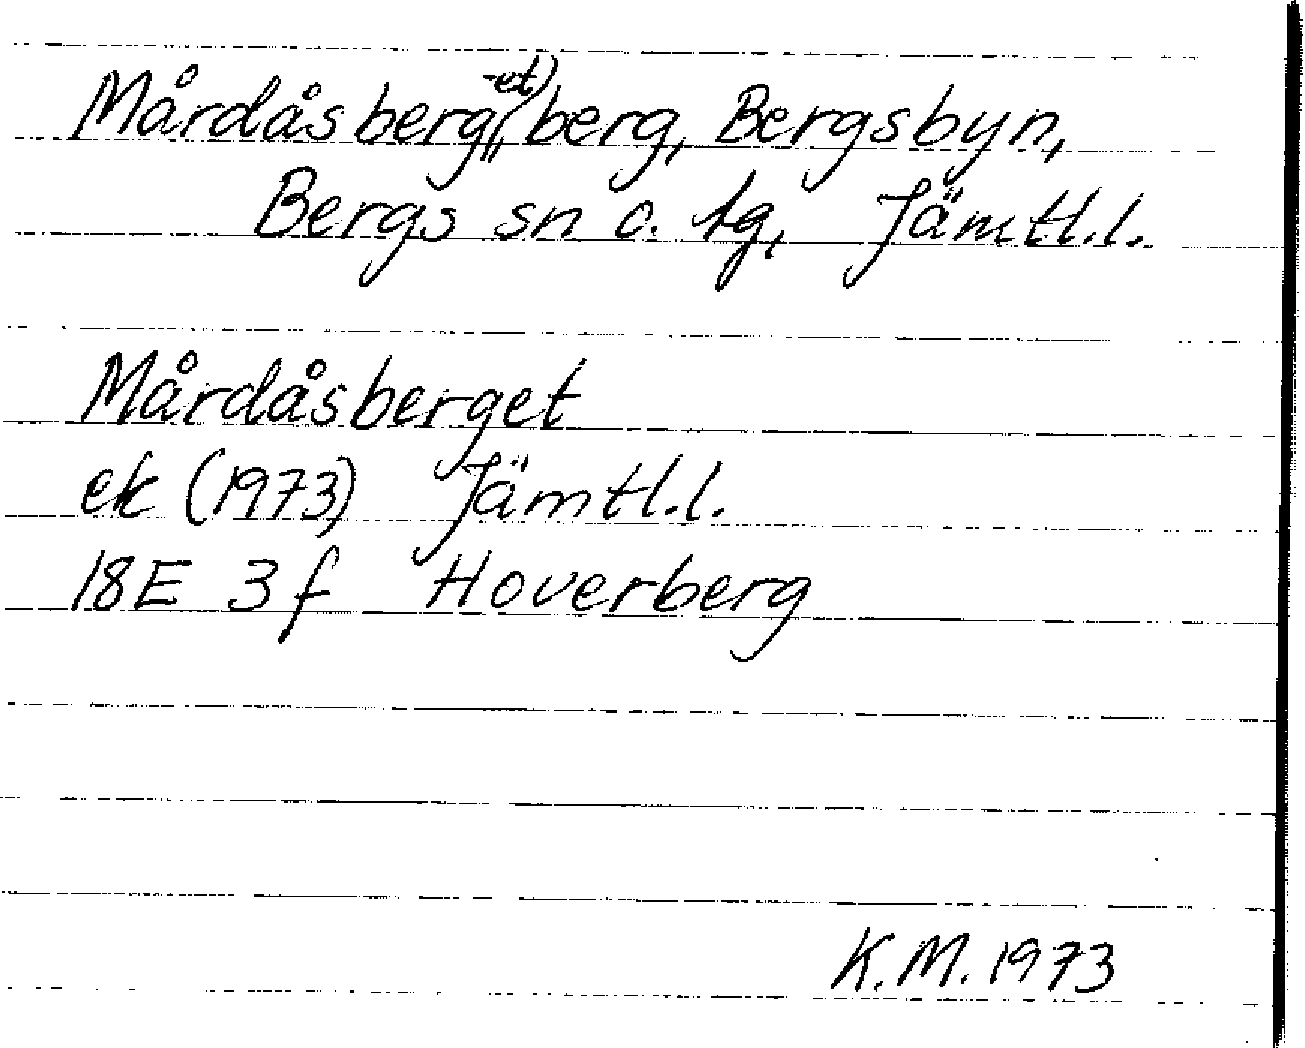 Mårdåsberg, -et, berg, Bergsbyn,
Bergs sn o. tg, Jämtl.l.
Mårdåsberget
ek (1973) Jämtl.l.
18E 3f Hoverberg
K.M. 1973